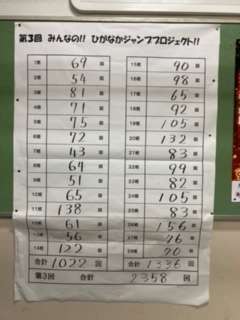 第3回 みんなの!! ひがなかジャンププロジェクト!!
1班 69 回 15班 90 回
2班 54 回 16班 98 回
3班 81 回 17班 65 回
4班 71 回 18班 92 回
5班 75 回 19班 105 回
6班 72 回 20班 132 回
7班 43 回 21班 83 回
8班 64 回 22班 99 回
9班 51 回 23班 82 回
10班 65 回 24班 105 回
11班 138 回 25班 83 回
12班 61 回 26班 156 回
13班 56 回 27班 76 回
14班 122 回 28班 70 回
合計 1022 回 合計 1336 回
第3回 合計 2358 回